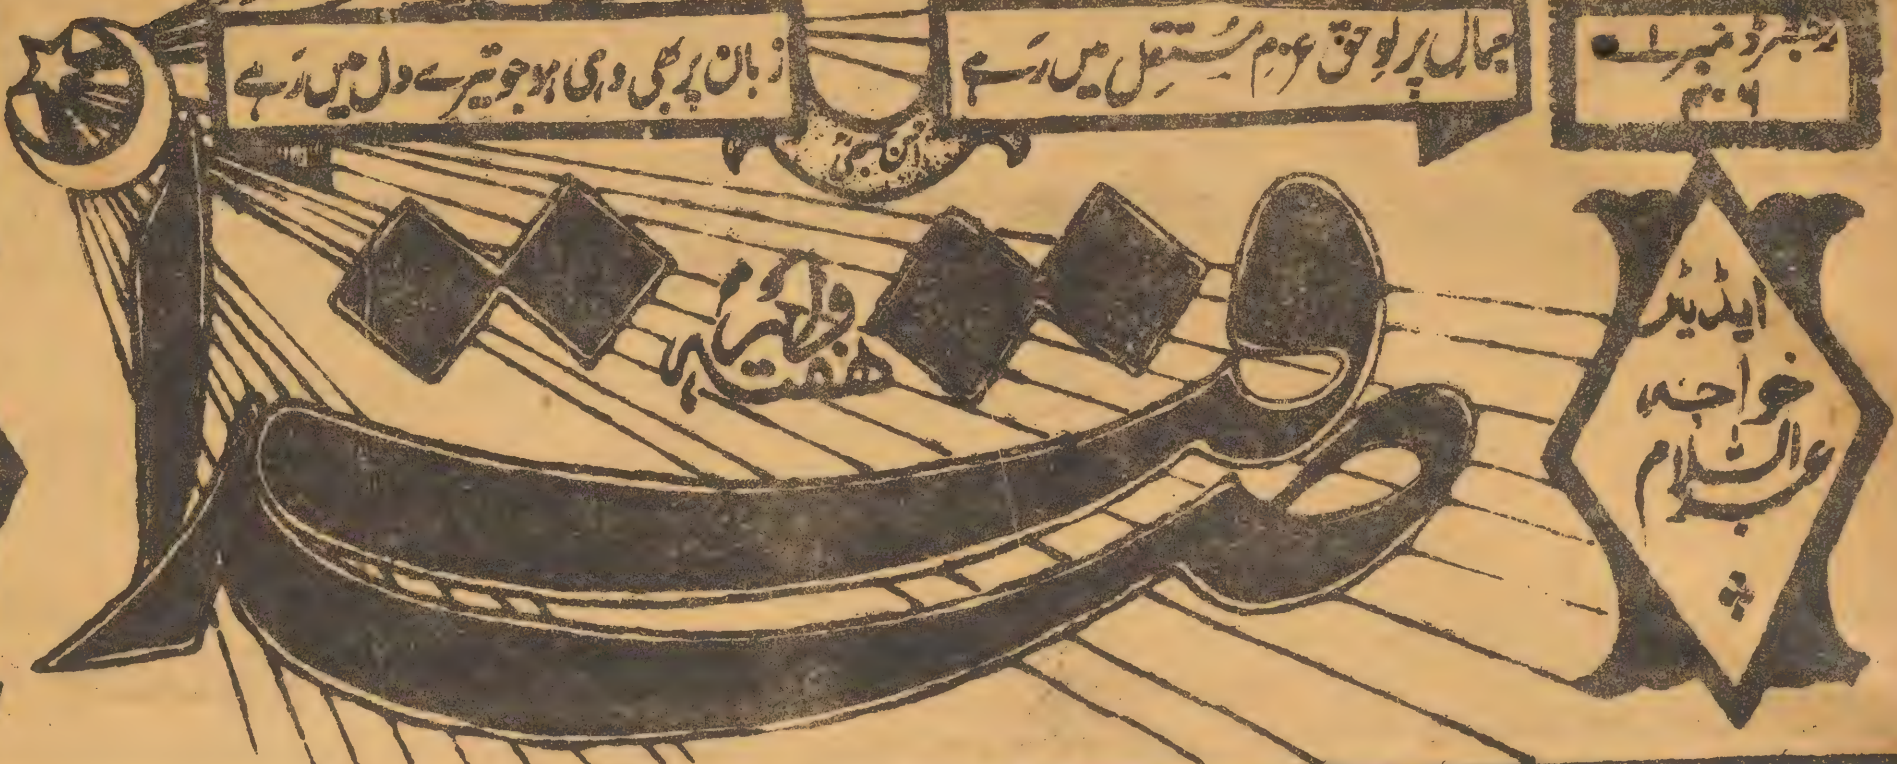 رجسٹرڈ نمبر اے
جمالِ پرتوِ حق عزمِ مُستقِل میں رَہے
زبان پر بھی وہی ہو جو تیرے دل میں رَہے
صداقت
ہفتہ وار
ایڈیٹر
خواجہ
عبدالسلام